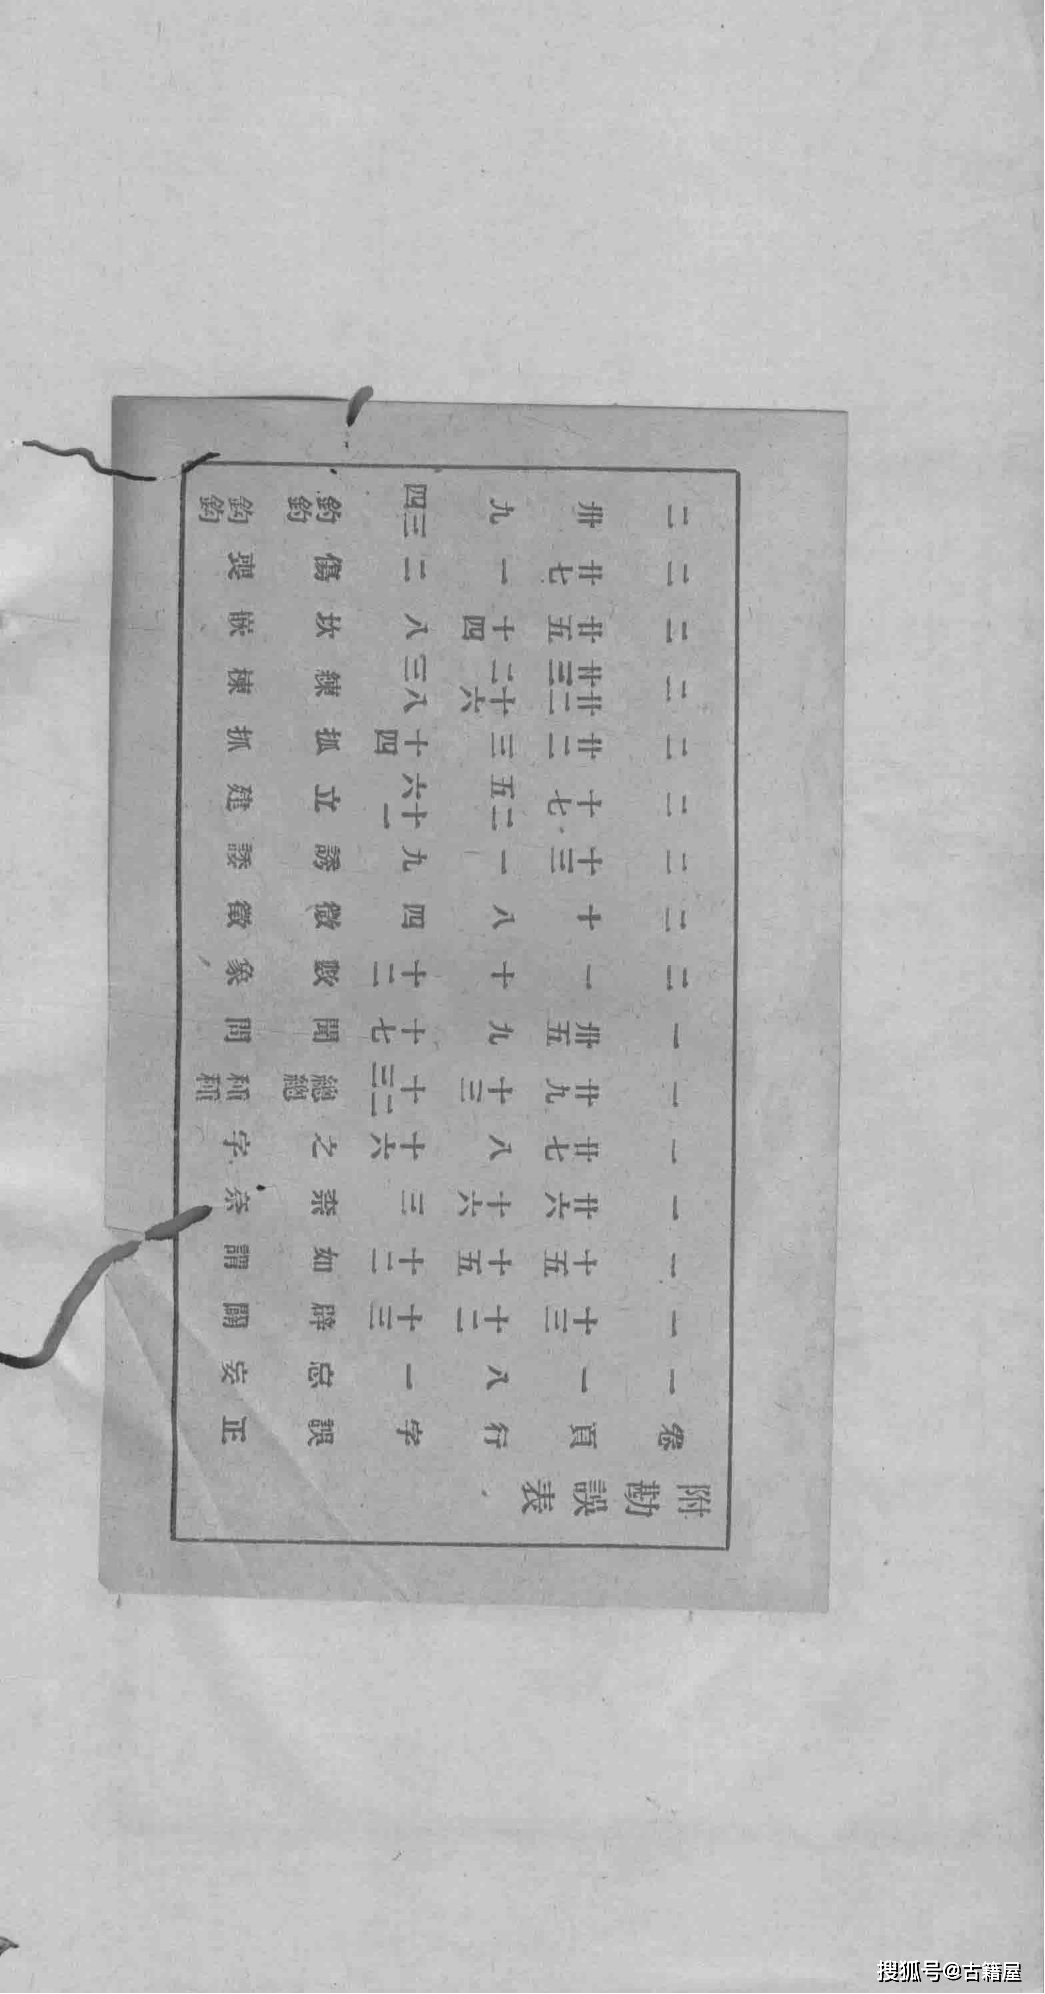 附勘誤表
卷 頁 行 字 誤 正
一 一 八 一 忘 妄
一 十三 十二 十三 辟 闢
一 十五 十五 十二 如 謂
一 廿六 十六 三 柰 奈
一 廿七 八 十六 之 字
一 廿九 十三 十二三 總總
一 卅五 九 十七 聞 問
二 一 十 十二 數 象
二 十 八 四 微 徵
二 十三 一 九 誘 諉
二 十七 二五 十一六 立 建
二 廿二 三 十四 抓
二 廿二卅三 十六二 八三 練 棟
二 廿五 十四 八 坎 嵌
二 廿七 一 二 傷 喪
二 卅 九 三四 鈞鈞
搜狐号@古籍屋